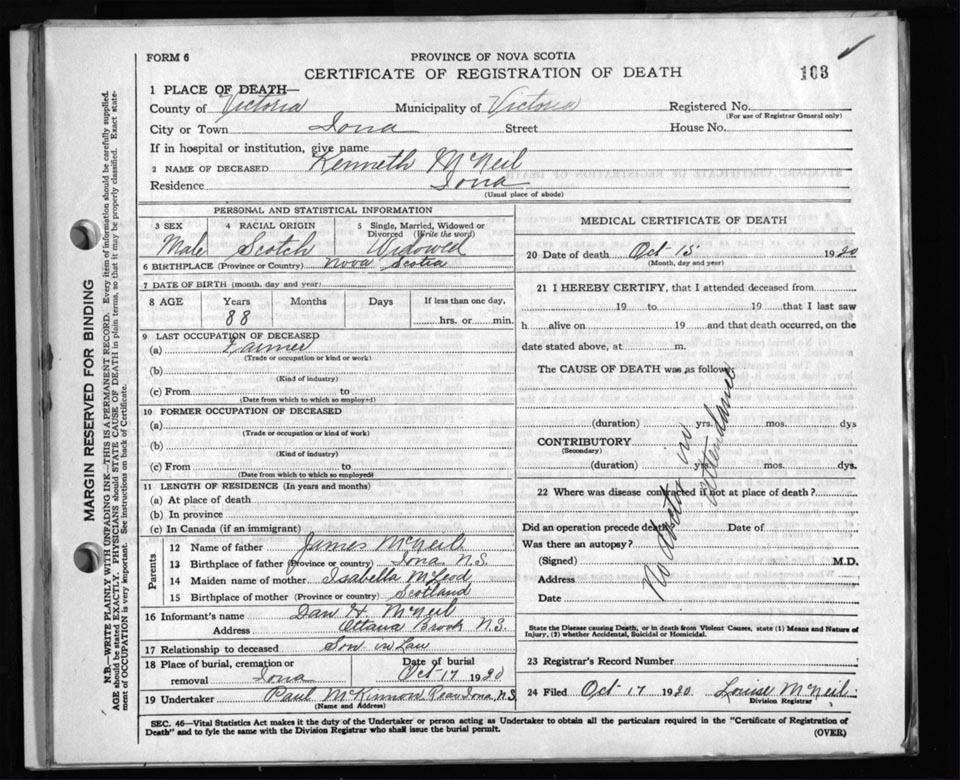 FORM 6
PROVINCE OF NOVA SCOTIA
CERTIFICATE OF REGISTRATION OF DEATH
103
1 PLACE OF DEATH—
County of Victoria Municipality of Victoria Registered No.
(For use of Registrar General only)
City or Town Iona Street House No.
If in hospital or institution, give name
2 NAME OF DECEASED Kenneth McNeil
Residence Iona
(Usual place of abode)
MARGIN RESERVED FOR BINDING
N.B.—WRITE PLAINLY WITH UNFADING INK—THIS IS A PERMANENT RECORD. Every item of information should be carefully supplied.
AGE should be stated EXACTLY. PHYSICIANS should STATE CAUSE OF DEATH in plain terms, so that it may be properly classified. Exact state-
ment of OCCUPATION is very important. See instructions on back of Certificate.
PERSONAL AND STATISTICAL INFORMATION
3 SEX 4 RACIAL ORIGIN 5 Single, Married, Widowed or
Divorced (Write the word)
Male Scotch Widowed
6 BIRTHPLACE (Province or Country) Nova Scotia
7 DATE OF BIRTH (month, day and year)
8 AGE Years Months Days If less than one day,
88 hrs. or min.
9 LAST OCCUPATION OF DECEASED
(a) Farmer
(Trade or occupation or kind or work)
(b)
(Kind of industry)
(c) From to
(Date from which to which so employed)
10 FORMER OCCUPATION OF DECEASED
(a)
(Trade or occupation or kind of work)
(b)
(Kind of industry)
(c) From to
(Date from which to which so employed)
11 LENGTH OF RESIDENCE (In years and months)
(a) At place of death
(b) In province
(c) In Canada (if an immigrant)
Parents
12 Name of father James McNeil
13 Birthplace of father (Province or country) Iona N.S.
14 Maiden name of mother Isabella McLeod
15 Birthplace of mother (Province or country) Scotland
16 Informant's name Dan H. McNeil
Address Ottawa Brook N.S.
17 Relationship to deceased Son in Law
18 Place of burial, cremation or Date of burial
removal Iona Oct 17 1930
19 Undertaker Paul McKinnon Rear Iona, N.S
(Name and Address)
MEDICAL CERTIFICATE OF DEATH
20 Date of death Oct 15 1930
(Month, day and year)
21 I HEREBY CERTIFY, that I attended deceased from
19 to 19 that I last saw
h alive on 19 and that death occurred, on the
date stated above, at m.
The CAUSE OF DEATH was as follow:
(duration) yrs. mos. dys
CONTRIBUTORY
(Secondary)
(duration) yrs. mos. dys.
No doctor in attendance
22 Where was disease contracted if not at place of death?
Did an operation precede death Date of
Was there an autopsy?
(Signed) M.D.
Address
Date
State the Disease causing Death, or in death from Violent Causes, state (1) Means and Nature of
Injury, (2) whether Accidental, Suicidal or Homicidal.
23 Registrar's Record Number
24 Filed Oct 17 1930. Louise McNeil
Division Registrar
SEC. 46—Vital Statistics Act makes it the duty of the Undertaker or person acting as Undertaker to obtain all the particulars required in the "Certificate of Registration of
Death" and to fyle the same with the Division Registrar who shall issue the burial permit. (OVER)